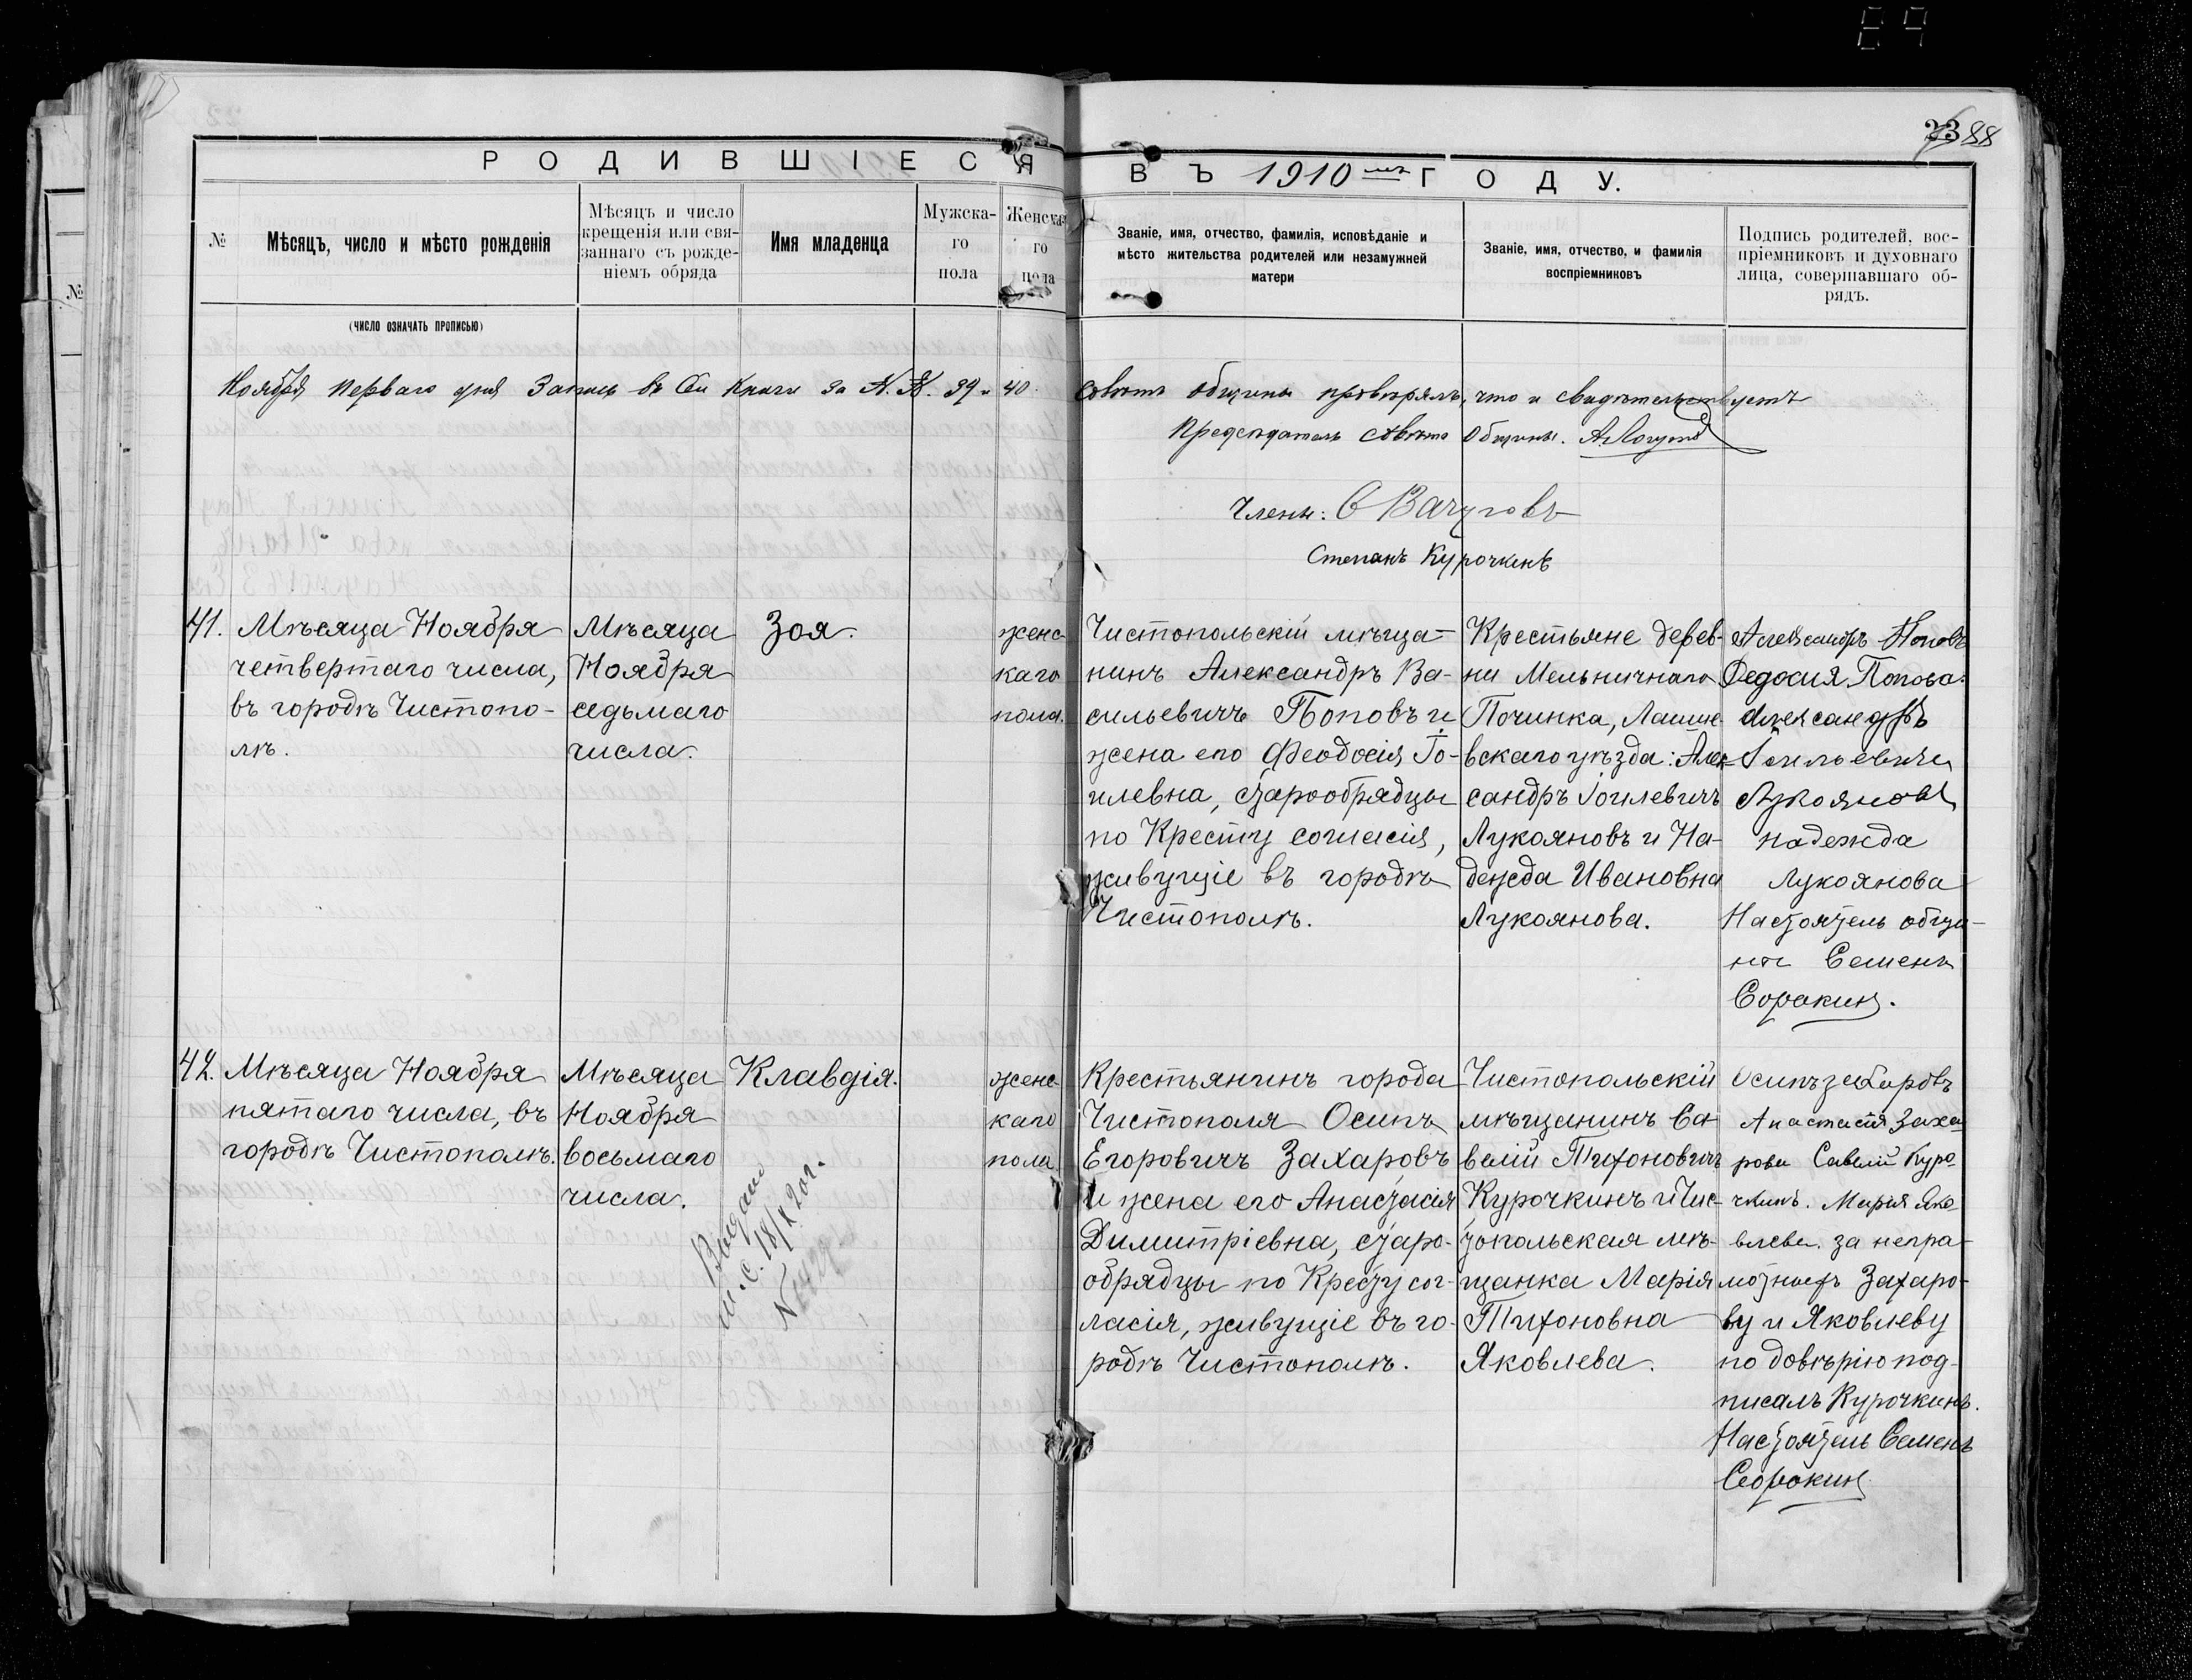 89
23 88
РОДИВШІЕСЯ ВЪ 1910 мъ ГОДУ.
№
Мѣсяцъ, число и мѣсто рожденія
Мѣсяцъ и число
крещенія или свя-
заннаго съ рожде-
ніемъ обряда
Имя младенца
Мужска-
го
пола
Женска-
го
пола
Званіе, имя, отчество, фамилія, исповѣданіе и
мѣсто жительства родителей или незамужней
матери
Званіе, имя, отчество, и фамилія
воспріемниковъ
Подпись родителей, вос-
пріемниковъ и духовнаго
лица, совершавшаго об-
рядъ.
(ЧИСЛО ОЗНАЧАТЬ ПРОПИСЬЮ)
№
Ноября перваго дня Запись въ сей книги за N.N. 39 и 40 совѣтъ общины провѣрялъ, что и свидѣтельствуетъ
Предсѣдатель совѣта Общины.
Члены: О Вачуговъ
Степанъ Курочкинъ
41.
Мѣсяца Ноября
четвертаго числа,
въ городѣ Чистопо-
лѣ.
Мѣсяца
Ноября
седьмаго
числа.
Зоя.
женс-
каго
пола.
Чистопольскій мѣща-
нинъ Александръ Ва-
сильевичъ Поповъ и
жена его Феодосія Іо-
илевна, старообрядцы
по Кресту согласія,
живущіе въ городѣ
Чистополѣ.
Крестьяне дерев-
ни Мельничнаго
Починка, Лаише-
вскаго уѣзда: Алек-
сандръ Іоилевичъ
Лукояновъ и На-
дежда Ивановна
Лукоянова.
Александръ Поповъ
Федосия Попова.
Александръ
Лукояновъ
надежда
Лукоянова
Настоятель общи-
ны Семенъ
Сорокинъ.
42.
Мѣсяца Ноября
пятаго числа, въ
городѣ Чистополѣ.
Мѣсяца
Ноября
восьмаго
числа.
Клавдія.
Выдано
м.С. 18/X 20г.
женс-
каго
пола
Крестьянинъ города
Чистополя Осипъ
Егоровичъ Захаровъ
и жена его Анастасія
Димитріевна, старо-
обрядцы по Кресту сог-
ласія, живущіе въ го-
родѣ Чистополѣ.
Чистопольскій
мѣщанинъ Са-
велій Тихоновичъ
Курочкинъ и Чис-
топольская мѣ-
щанка Марія
Тихоновна
Яковлева.
Осипъ Захаровъ
Анастасія Заха-
рова Савелій Куро-
чкинъ. Марія Яко-
влева. за негра-
мотность Захаро-
ву и Яковлеву
по довѣрію под-
писалъ Курочкинъ.
Настоятель Семенъ
Сорокинъ